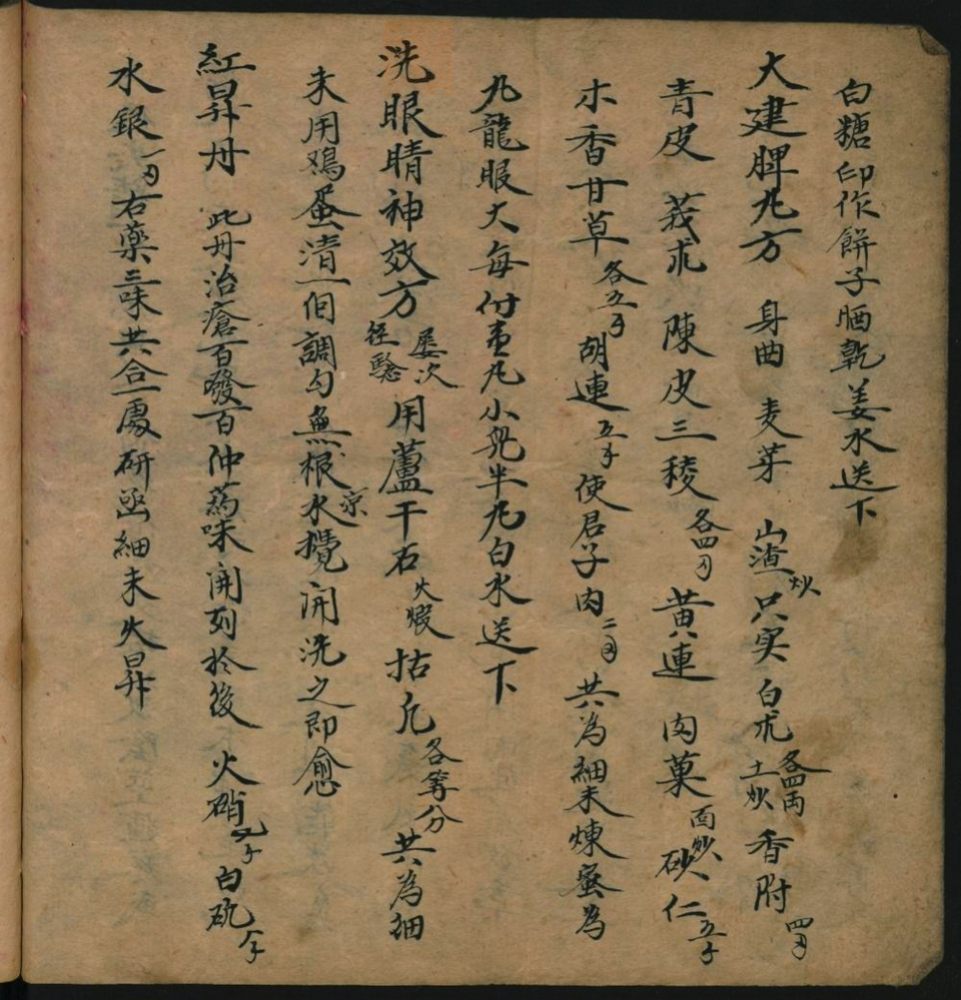 白糖印作餅子晒乾姜水送下
大建脾丸方 身曲 麦芽 山渣炒只实白朮各四両土炒香附四刃
青皮 莪朮 陳皮三稜各四刃黄連 肉菓面炒砂仁五子
木香甘草各五子胡連五子使君子肉二刃共為細末煉蜜為
丸龍眼大每付壱丸小兒半丸白水送下
洗眼睛神效方屡次経驗用蘆干石火煆枯凡各等分共為細
末用鴳蛋清一個調匀無根水京攪開洗之即愈
紅昇丹 此丹治瘡百發百仲葯味開列於後 火硝九子白矾个子
水銀一刃右藥三味共合一處研亟細末火昇